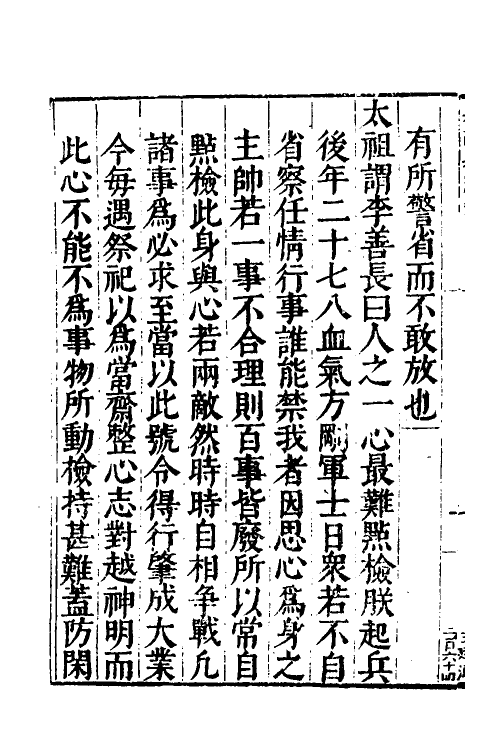 有所警省而不敢放也
太祖謂李善長曰人之一心最難㸃檢朕起兵
後年二十七八血氣方剛軍士日衆若不自
省察任情行事誰能禁我者因思心爲身之
主帥若一事不合理則百事皆廢所以常自
㸃檢此身與心若兩敵然時時自相爭戰凢
諸事爲必求至當以此號令得行肇成大業
今毎遇祭祀以爲當齋整心志對越神明而
此心不能不爲事物所動檢持甚難蓋防閑